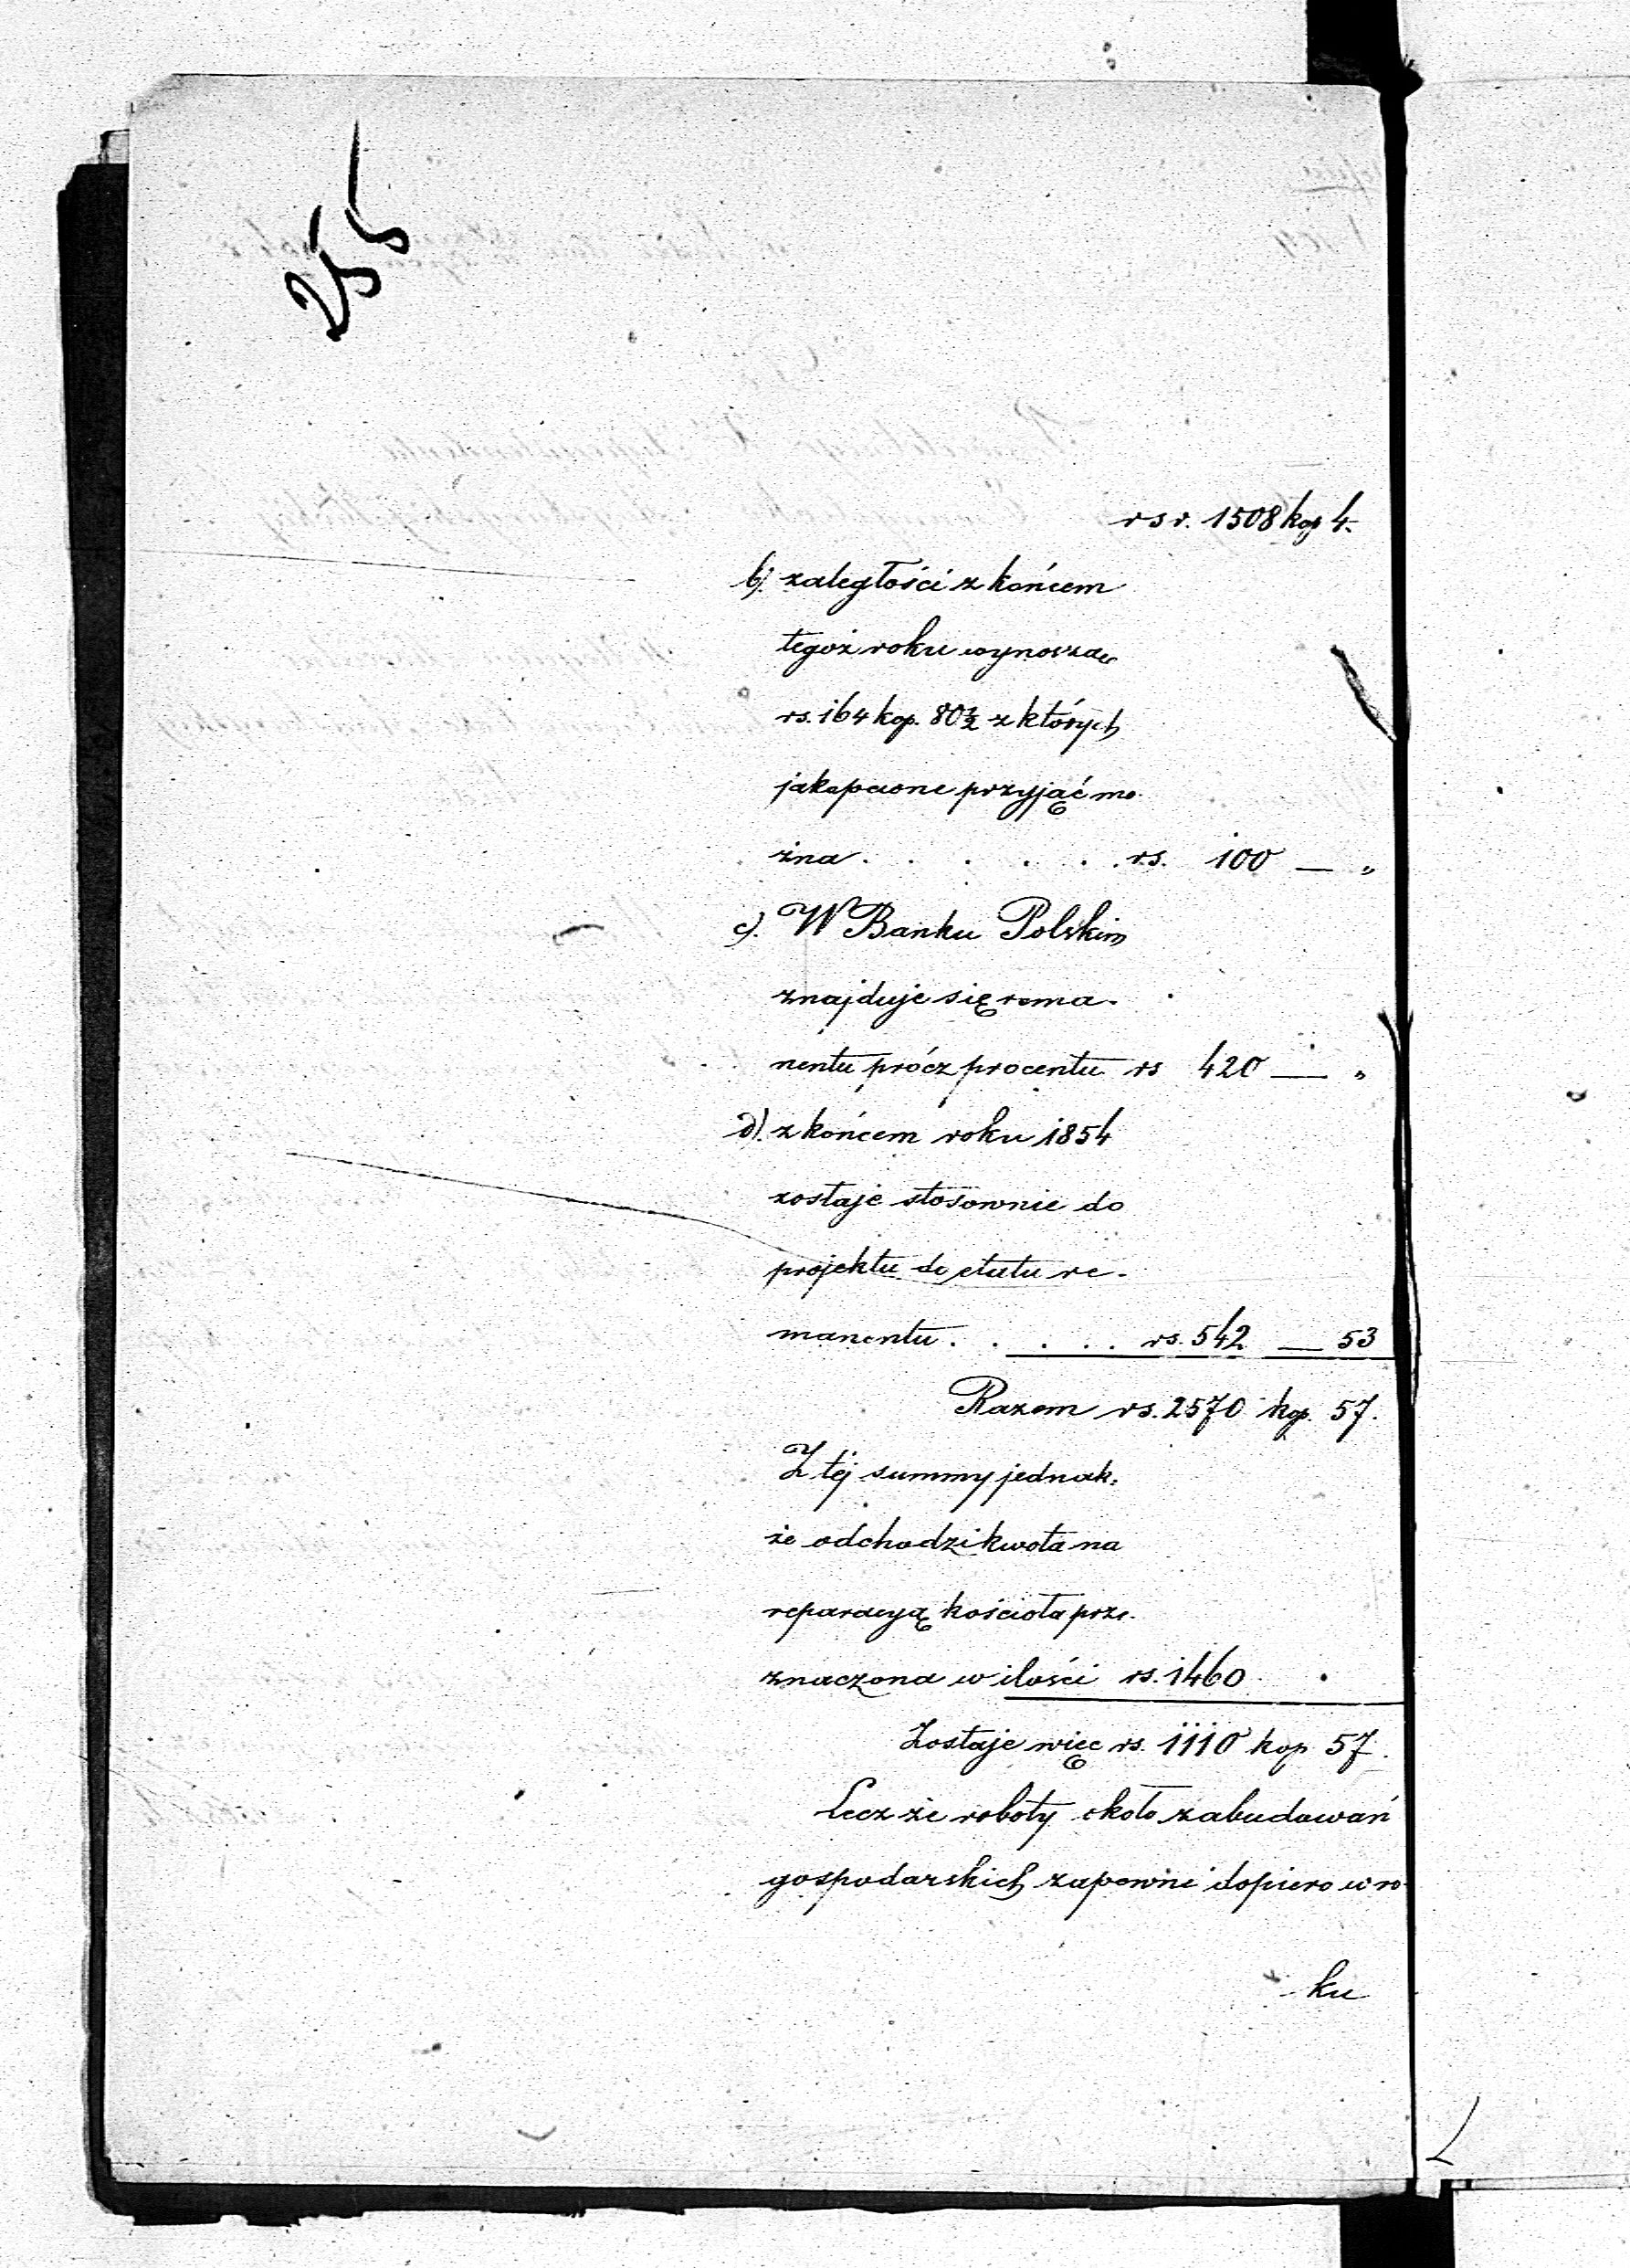 255
rsr. 1508 kop 4.
b). zaległości z końcem
tegoż roku wynoszą
rs. 164 kop. 80½ z których
jako pewne przyjąć mo-
żna . . . . . . rs. 100 — „
c). W Banku Polskim
znajduje się rema-
nentu prócz procentu rs 420 — „
d). z końcem roku 1854
zostaje stosownie do
projektu do etatu re-
manentu . . . . . rs. 542 — 53
Razem rs. 2570 kop. 57.
Z tej summy jednak-
że odchodzi kwota na
reparacyą kościoła prze-
znaczona w ilości rs. 1460
Zostaje więc rs. 1110 kop 57.
Lecz że roboty około zabudowań
gospodarskich zapewne dopiero w ro-
ku